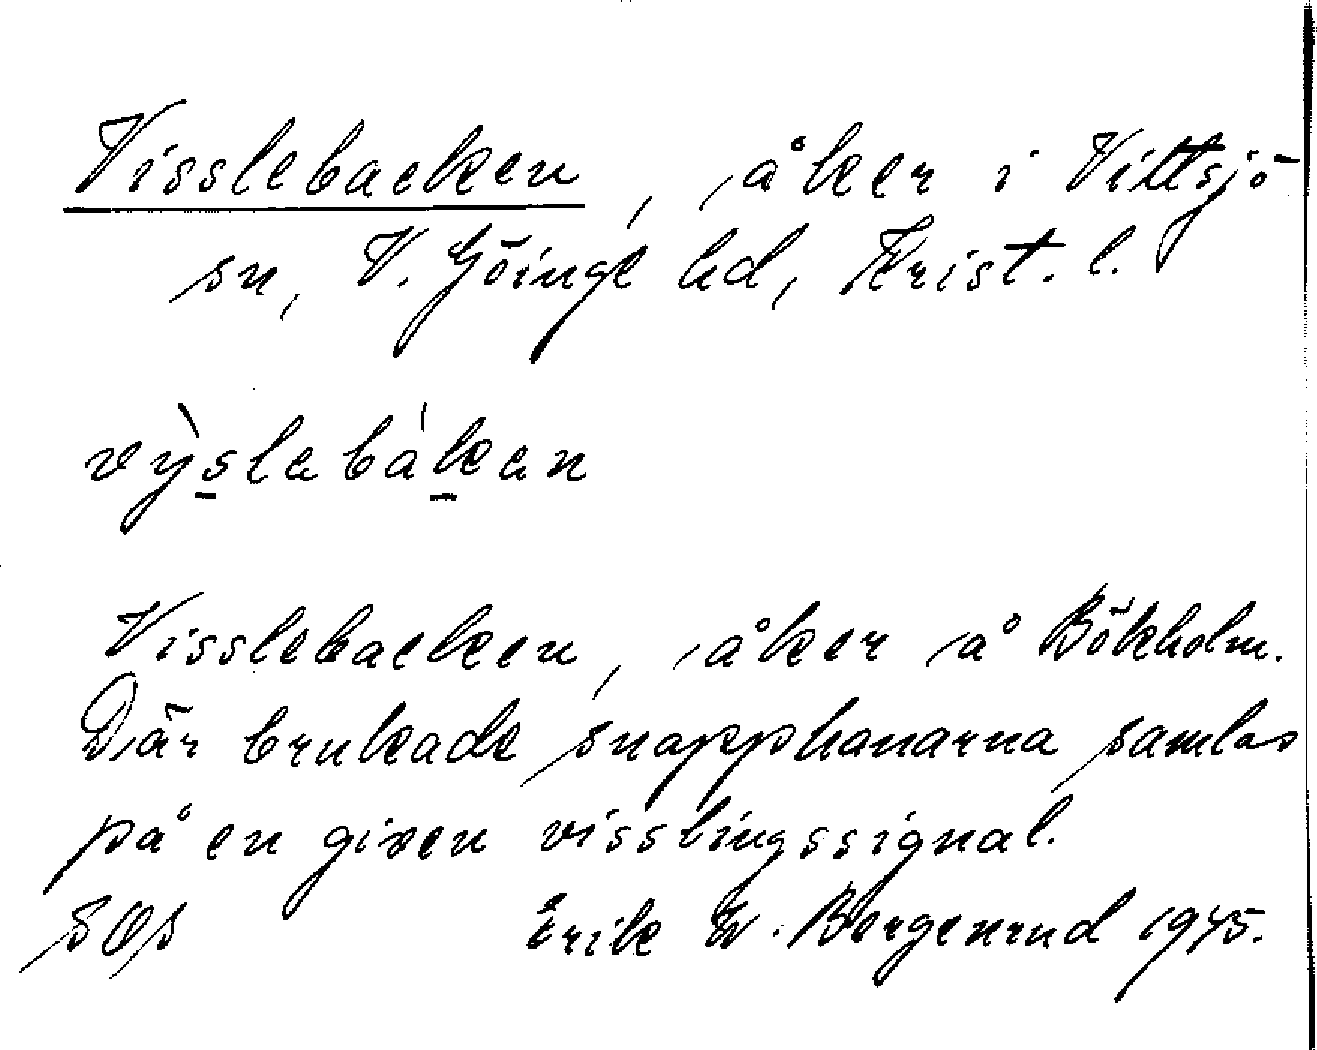 Visslebacken, åker i Vittsjö
sn, V. Göinge hd, Krist. l.
vỳslabákan
Visslebacken, åker å Bökholm.
Där brukade snapphanarna samlas
på en given visslingssignal.
SOS Erik W. Bergenrud 1945.